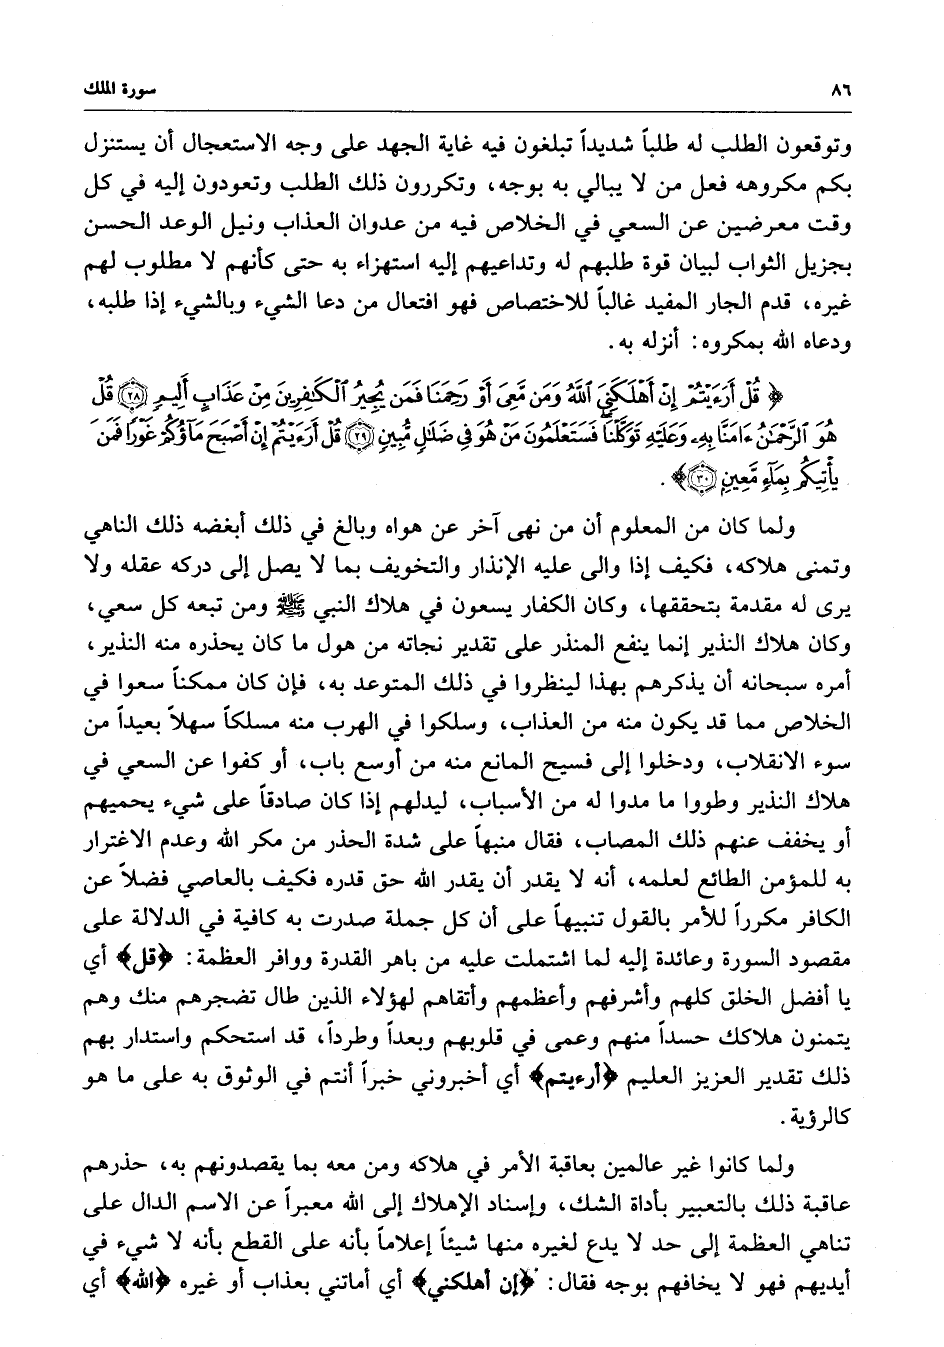 ٨٦ سورة الملك
وتوقعون الطلب له طلباً شديداً تبلغون فيه غاية الجهد على وجه الاستعجال أن يستنزل
بكم مكروهه فعل من لا يبالي به بوجه، وتكررون ذلك الطلب وتعودون إليه في كل
وقت معرضين عن السعي في الخلاص فيه من عدوان العذاب ونيل الوعد الحسن
بجزيل الثواب لبيان قوة طلبهم له وتداعيهم إليه استهزاء به حتى كأنهم لا مطلوب لهم
غيره، قدم الجار المفيد غالباً للاختصاص فهو افتعال من دعا الشيء وبالشيء إذا طلبه،
ودعاه الله بمكروه: أنزله به.
﴿قُلْ أَرَءَيْتُمْ إِنْ أَهْلَكَنِيَ ٱللَّهُ وَمَن مَّعِىَ أَوْ رَحِمَنَا فَمَن يُجِيرُ ٱلْكَٰفِرِينَ مِنْ عَذَابٍ أَلِيمٍ ﴿٢٨﴾ قُلْ
هُوَ ٱلرَّحْمَٰنُ ءَامَنَّا بِهِۦ وَعَلَيْهِ تَوَكَّلْنَا فَسَتَعْلَمُونَ مَنْ هُوَ فِى ضَلَٰلٍ مُّبِينٍ ﴿٢٩﴾ قُلْ أَرَءَيْتُمْ إِنْ أَصْبَحَ مَآؤُكُمْ غَوْرًا فَمَن
يَأْتِيكُم بِمَآءٍ مَّعِينٍ ﴿٣٠﴾﴾.
ولما كان من المعلوم أن من نهى آخر عن هواه وبالغ في ذلك أبغضه ذلك الناهي
وتمنى هلاكه، فكيف إذا والى عليه الإنذار والتخويف بما لا يصل إلى دركه عقله ولا
يرى له مقدمة بتحققها، وكان الكفار يسعون في هلاك النبي ﷺ ومن تبعه كل سعي،
وكان هلاك النذير إنما ينفع المنذر على تقدير نجاته من هول ما كان يحذره منه النذير،
أمره سبحانه أن يذكرهم بهذا لينظروا في ذلك المتوعد به، فإن كان ممكناً سعوا في
الخلاص مما قد يكون منه من العذاب، وسلكوا في الهرب منه مسلكاً سهلاً بعيداً من
سوء الانقلاب، ودخلوا إلى فسيح المانع منه من أوسع باب، أو كفوا عن السعي في
هلاك النذير وطووا ما مدوا له من الأسباب، ليدلهم إذا كان صادقاً على شيء يحميهم
أو يخفف عنهم ذلك المصاب، فقال منبهاً على شدة الحذر من مكر الله وعدم الاغترار
به للمؤمن الطائع لعلمه، أنه لا يقدر أن يقدر الله حق قدره فكيف بالعاصي فضلاً عن
الكافر مكرراً للأمر بالقول تنبيهاً على أن كل جملة صدرت به كافية في الدلالة على
مقصود السورة وعائدة إليه لما اشتملت عليه من باهر القدرة ووافر العظمة: ﴿قل﴾ أي
يا أفضل الخلق كلهم وأشرفهم وأعظمهم وأتقاهم لهؤلاء الذين طال تضجرهم منك وهم
يتمنون هلاكك حسداً منهم وعمى في قلوبهم وبعداً وطرداً، قد استحكم واستدار بهم
ذلك تقدير العزيز العليم ﴿أرءيتم﴾ أي أخبروني خبراً أنتم في الوثوق به على ما هو
كالرؤية.
ولما كانوا غير عالمين بعاقبة الأمر في هلاكه ومن معه بما يقصدونهم به، حذرهم
عاقبة ذلك بالتعبير بأداة الشك، وإسناد الإهلاك إلى الله معبراً عن الاسم الدال على
تناهي العظمة إلى حد لا يدع لغيره منها شيئاً إعلاماً بأنه على القطع بأنه لا شيء في
أيديهم فهو لا يخافهم بوجه فقال: ﴿إن أهلكني﴾ أي أماتني بعذاب أو غيره ﴿الله﴾ أي